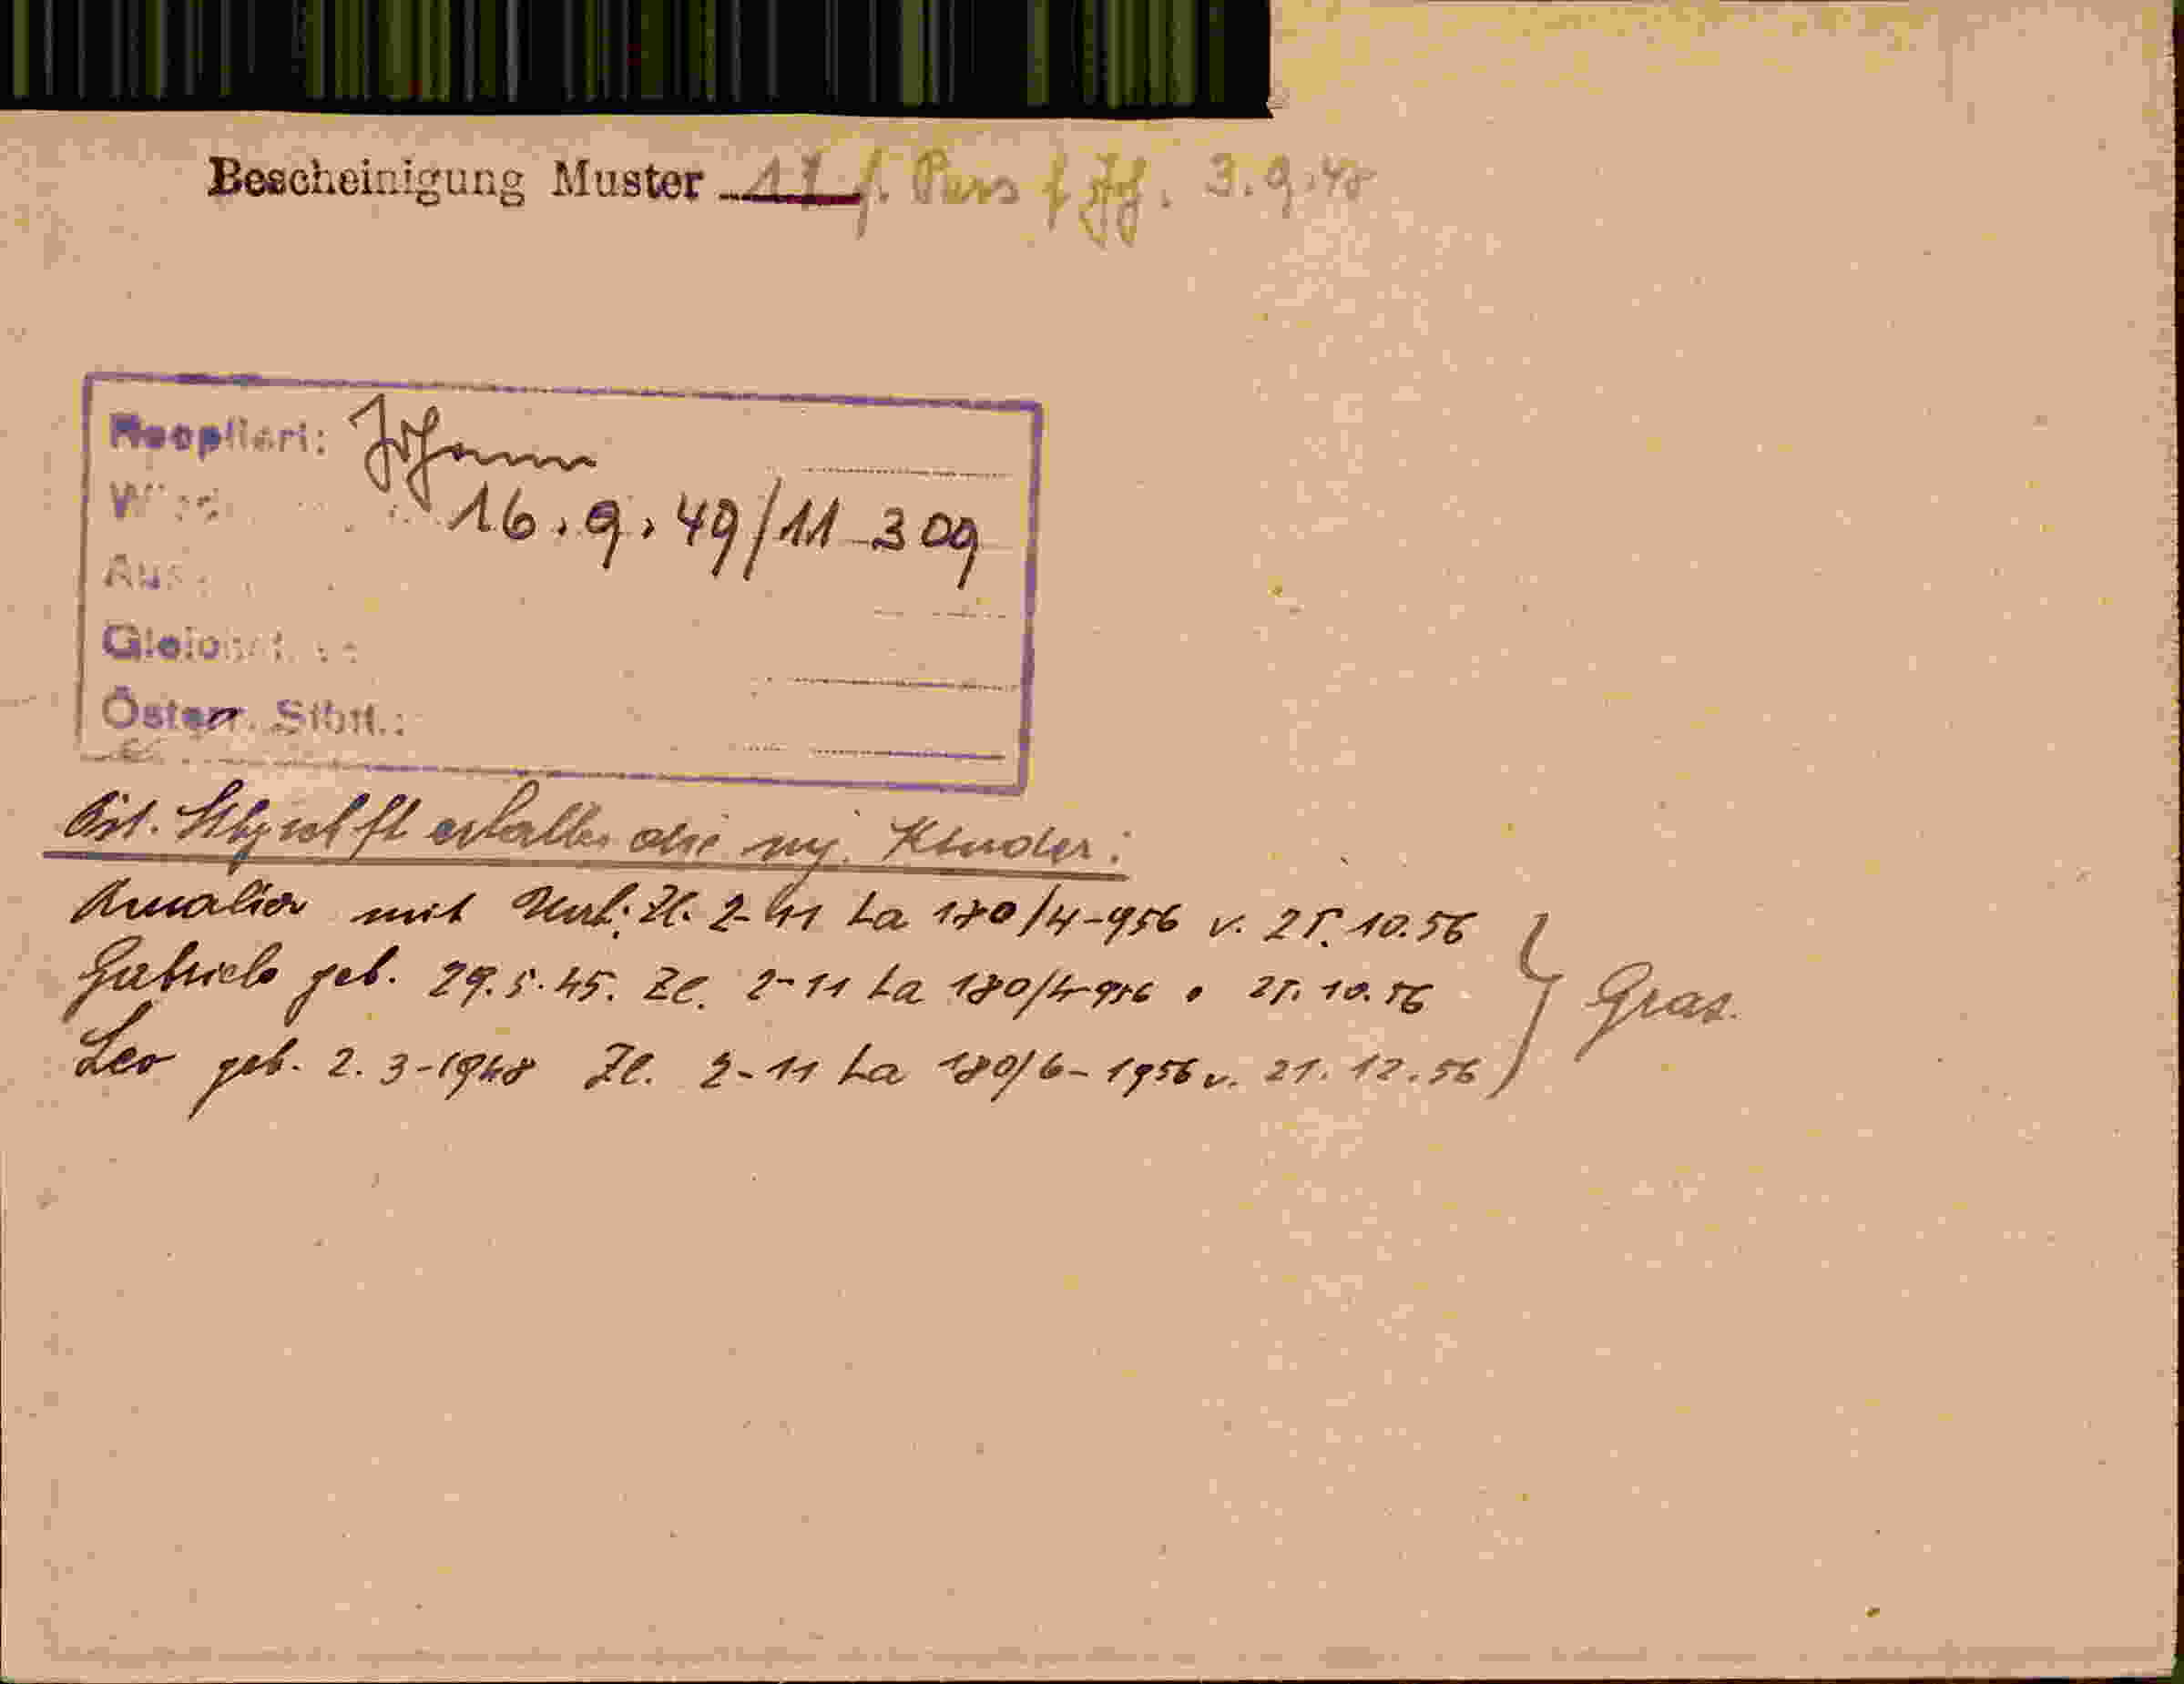 Bescheinigung Muster 17 f. Pers f 3.9.48
Johann
16.9.49/11-309
Österr. Stbft.:
Öst. erhalten die mj. Kinder:
Amalia mit Zl. 2-11 La 180/4-956 v. 25.10.56
Gabriele geb. 29.5.45. Zl. 2-11 La 180/4-956 " 25.10.56
Leo geb. 2.3-1948 Zl. 2-11 La 180/6-1956 v. 21.12.56
Graz.